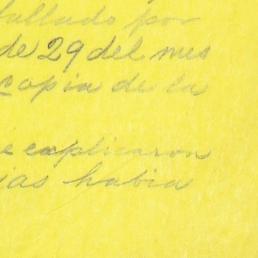 fallado por
de 29 del mes
copia de la
e explicaron
ias habia